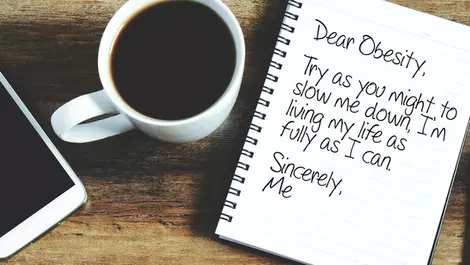 Dear Obesity,
Try as you might to
slow me down, I'm
living my life as
fully as I can.
Sincerely,
Me